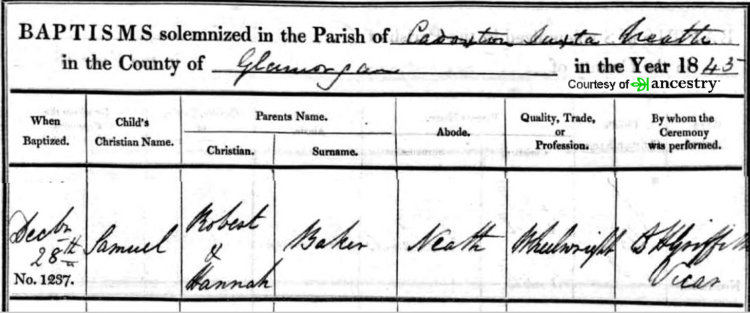 BAPTISMS solemnized in the Parish of Cadoxton Juxta Neath
in the County of Glamorgan in the Year 1845
Courtesy of ancestry
When Baptized.
Child's Christian Name.
Parents Name.
Christian.
Surname.
Abode.
Quality, Trade, or Profession.
By whom the Ceremony was performed.
Decbr 28th
No. 1237.
Samuel
Robert & Hannah
Baker
Neath
Wheelwright
D H Griffith Vicar